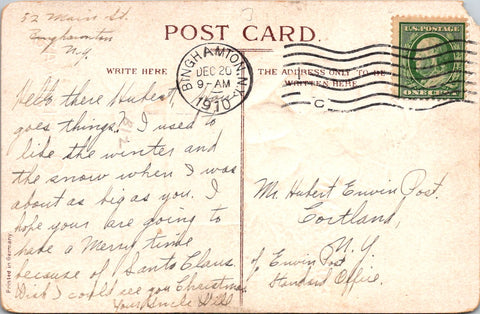 52 Main St.
Binghamton
N.Y.
POST CARD.
WRITE HERE
THE ADDRESS ONLY TO BE
WRITTEN HERE.
BINGHAMTON, N.Y.
DEC 20
9-AM
1910
C
U.S. POSTAGE
ONE CENT
Hello there Hubert,
goes things? I used to
like the winter and
the snow when I was
about as big as you. I
hope your are going to
have a Merry time
because of Santa Claus.
Wish I could see you Christmas
Your Uncle Will
Mr. Hubert Erwin Post.
Cortland,
N.Y.
c/o Erwin Post
Standard Office.
Printed in Germany